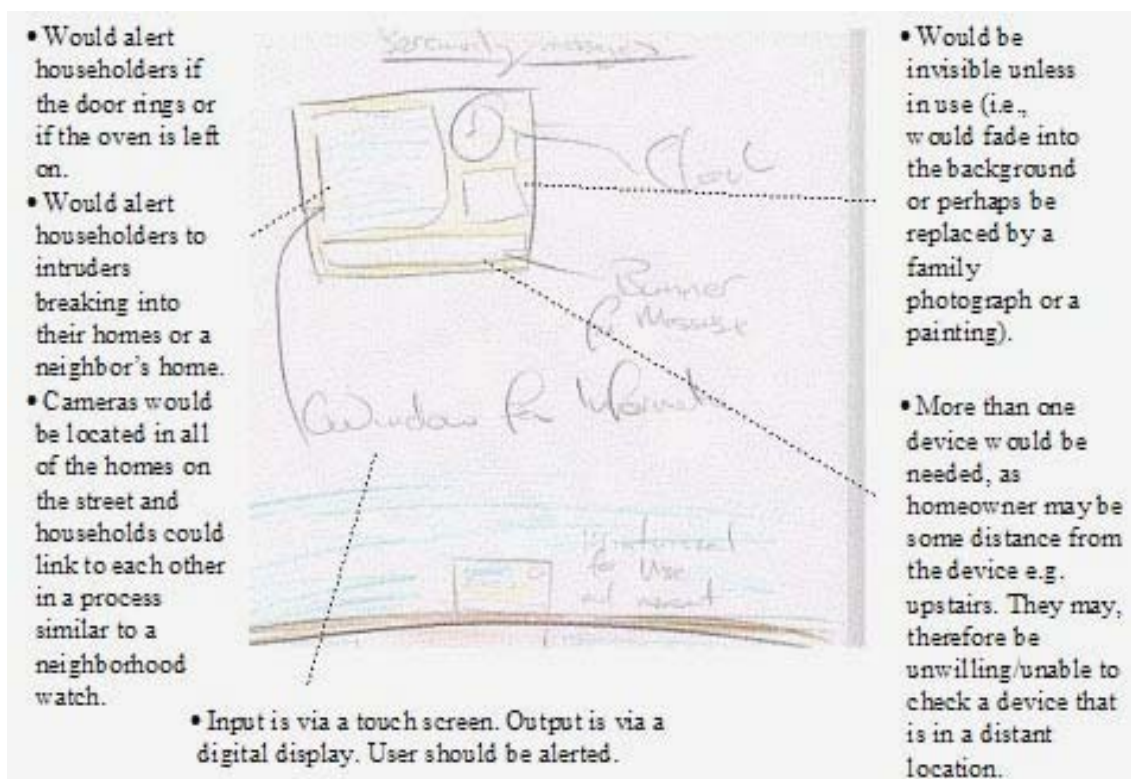 • Would alert
householders if
the door rings or
if the oven is left
on.
• Would alert
householders to
intruders
breaking into
their homes or a
neighbor's home.
• Cameras would
be located in all
of the homes on
the street and
households could
link to each other
in a process
similar to a
neighborhood
watch.
Clock
Banner
Message
Window for
for Use
• Input is via a touch screen. Output is via a
digital display. User should be alerted.
• Would be
invisible unless
in use (i.e.,
would fade into
the background
or perhaps be
replaced by a
family
photograph or a
painting).
• More than one
device would be
needed, as
homeowner may be
some distance from
the device e.g.
upstairs. They may,
therefore be
unwilling/unable to
check a device that
is in a distant
location.